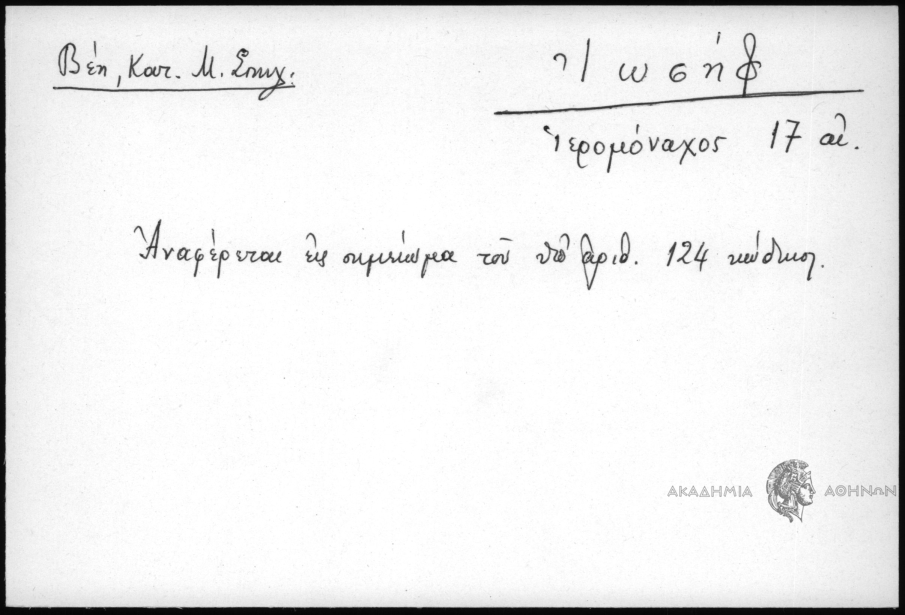 Βέη, Κατ. Μ. Σπηλ.
Ἰωσήφ
ἱερομόναχος 17 αἰ.
Ἀναφέρεται εἰς σημείωμα τοῦ ὑπ' ἀριθ. 124 κώδικος.
ΑΚΑΔΗΜΙΑ ΑΘΗΝΩΝ